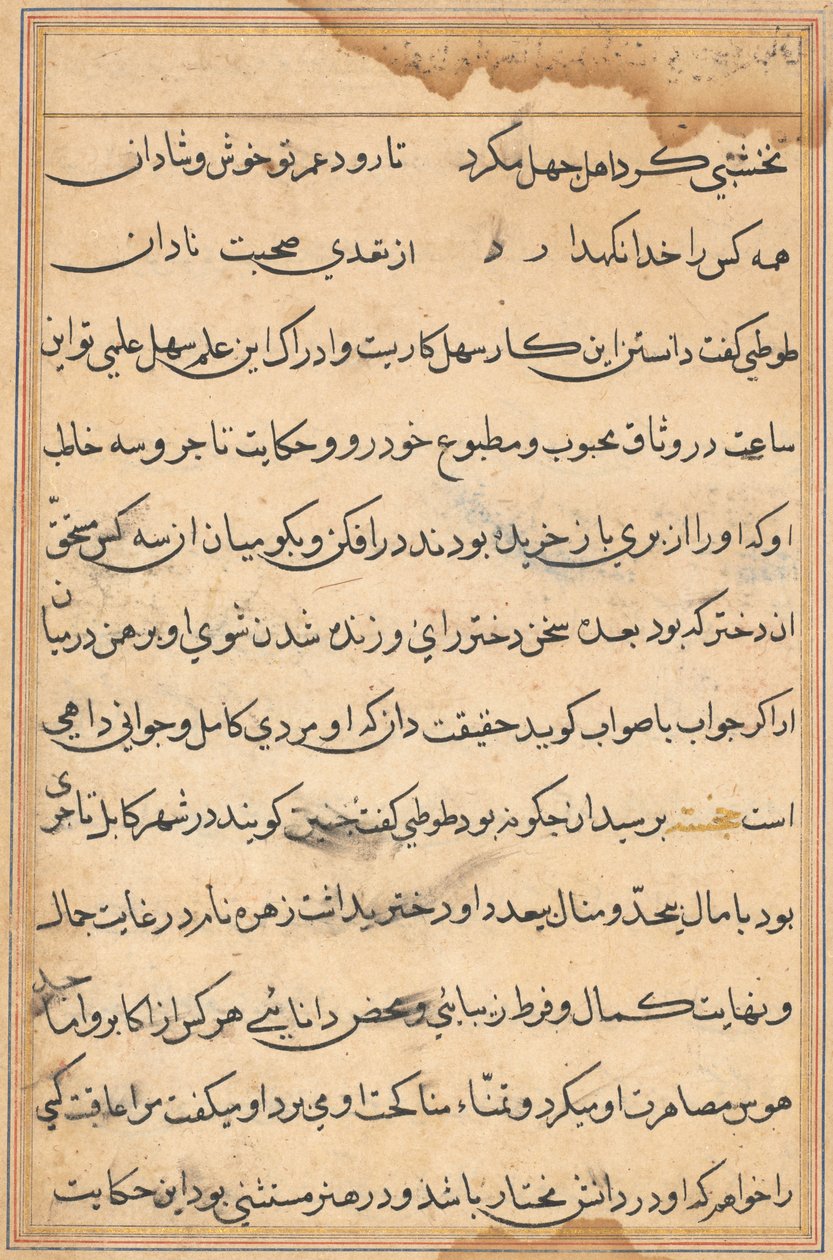 نخشبی کرد اهل جهل مکرد تا رود عمر تو خوش و شادان
همه کس را خدا نکهدارد از تعدی صحبت نادان
طوطی کفت دانستن این کار سهل کاریست و ادراک این علم سهل علمی تو این
ساعت در وثاق محبوب و مطبوع خود رو و حکایت تاجر و سه خاطب
او که او را از بری باز خریده بودند در افکن و بکو میان ان سه کس مستحقّ
ان دختر که بود بعده سخن دختر رای و زنده شدن شوی او برهمن در میان
ار اکر جواب باصواب کوید حقیقت دان که او مردی کامل و جوانی داهی
است خجسته برسید ان جکونه بود طوطی کفت جنین کویند در شهر کابل تاجری
بود با مال بیحدّ و منال بیعدد او دختری داشت زهره نام در غایت جمال
و نهایت کمال و فرط زیبایی و محض دانایی هر کس از اکابر و اماجد
هوس مصاهرت او میکرد و تمنّاء مناکحت او می برد او میکفت مرا عاقبت کسی
را خواهم که او در دانش مختار باشد و در هنر مستثنی بود این حکایت